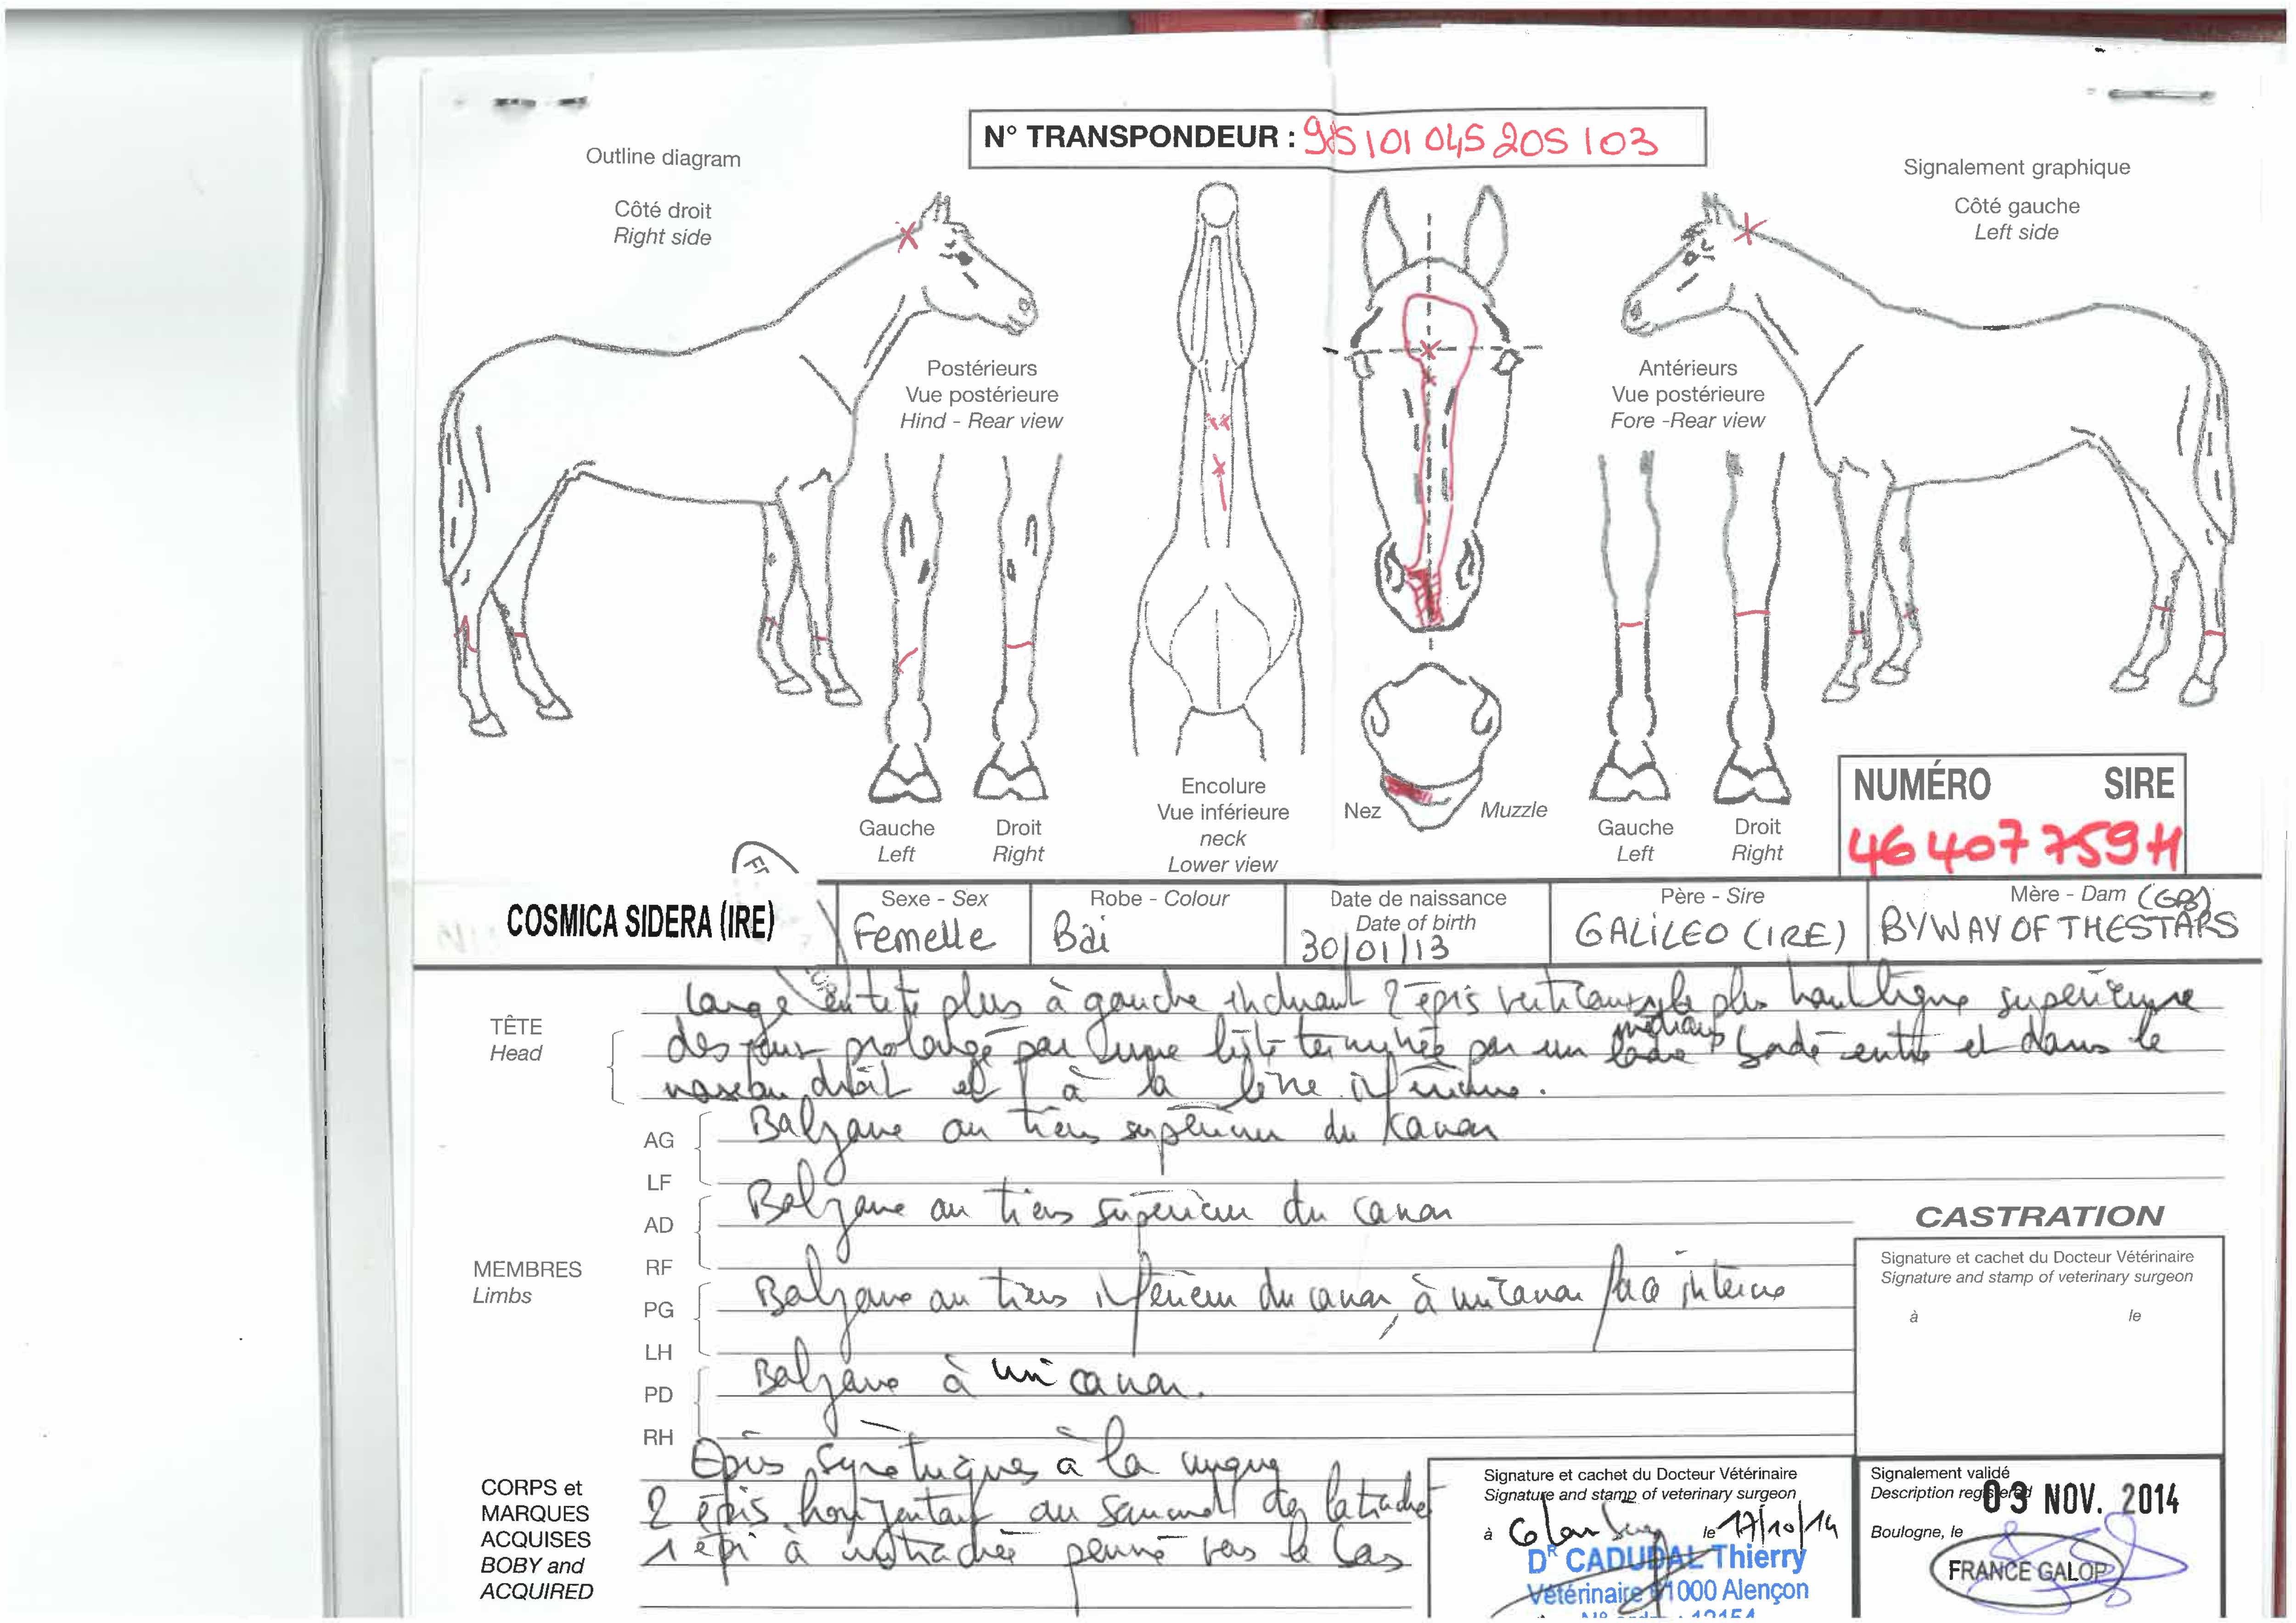 N° TRANSPONDEUR : 985101045205103
Outline diagram
Signalement graphique
Côté droit
Right side
Côté gauche
Left side
Postérieurs
Vue postérieure
Hind - Rear view
Antérieurs
Vue postérieure
Fore -Rear view
Encolure
Vue inférieure
neck
Lower view
Nez
Muzzle
Gauche
Left
Droit
Right
Gauche
Left
Droit
Right
NUMÉRO SIRE
46 407 759 H
COSMICA SIDERA (IRE)
Sexe - Sex
Femelle
Robe - Colour
Bai
Date de naissance
Date of birth
30/01/13
Père - Sire
GALILEO (IRE)
Mère - Dam (GB)
BYWAY OF THESTARS
TÊTE
Head
large en tête plus à gauche incluant 2 épis verticaux le plus haut ligne supérieure
des yeux prolongé par une liste terminée par un médians bordé entre et dans le
naseau droit et à la lèvre inférieure.
MEMBRES
Limbs
AG
LF
Balzane au tiers supérieur du canon
AD
RF
Balzane au tiers supérieur du canon
PG
LH
Balzane au tiers inférieur du canon, à mi canon face interne
PD
RH
Balzane à mi canon.
CORPS et
MARQUES
ACQUISES
BOBY and
ACQUIRED
Epis symétriques à la nuque
2 épis horizontaux au sommet de la trachée
1 épi à mi trachée penné vers le bas
CASTRATION
Signature et cachet du Docteur Vétérinaire
Signature and stamp of veterinary surgeon
à le
Signature et cachet du Docteur Vétérinaire
Signature and stamp of veterinary surgeon
à le 17/10/14
DR CADUDAL Thierry
Vétérinaire 61000 Alençon
N° ordre : 12154
Signalement validé
Description registered
03 NOV. 2014
Boulogne, le
FRANCE GALOP